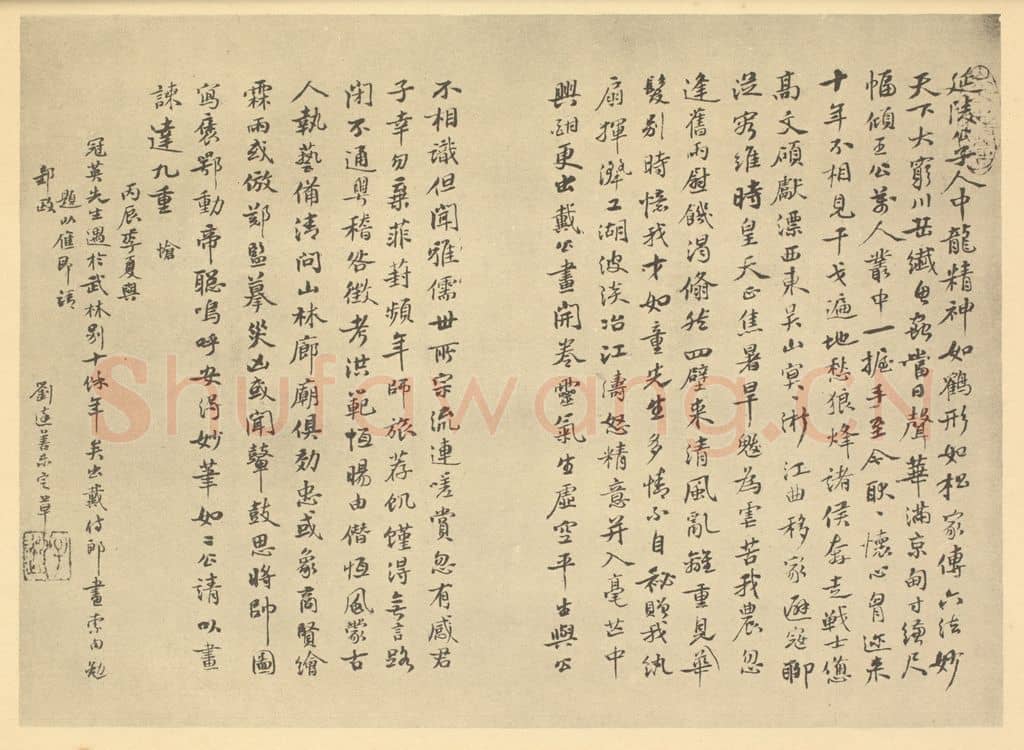 延陵公子人中龍精神如鶴形如松家傳六法妙
天下大窮川岳纖魚蟲當日聲華滿京甸寸縑尺
幅傾王公萬人叢中一握手至今耿、懷心胷邇來
十年不相見干戈遍地愁狼烽諸侯奔走戰士憊
高文碩獻漂西東吴山冥、浙江曲移家避寇聊
從容維時皇天正焦暑旱魃為害苦我農忽
逢舊雨慰饑渴翛然四壁來清風亂離重見華
髮別時憶我才如童先生多情不自秘贈我紈
扇揮濼工湖波淡冶江濤怒精意并入毫芒中
興酣更出戴公畫開卷靈氣生虛空平生與公
不相識但聞雅儒世所宗流連嗟賞忽有感君
子幸勿棄菲葑頻年師旅荐饥饉得無言路
閉不通粤稽咎徵考洪範恆暘由僭恆風蒙古
人執藝備清問山林廊廟俱効忠或象商賢繪
霖雨或倣鄭監摹災凶或聞鼙鼓思將帥圖
寫褒鄂動帝聰嗚呼安得妙筆如二公請以畫
諫達九重
丙辰季夏與
冠英先生遇於武林别十餘年矣出戴侍郎畫索句勉
題以應即請
郢政
劉
草
Shufawang.CN